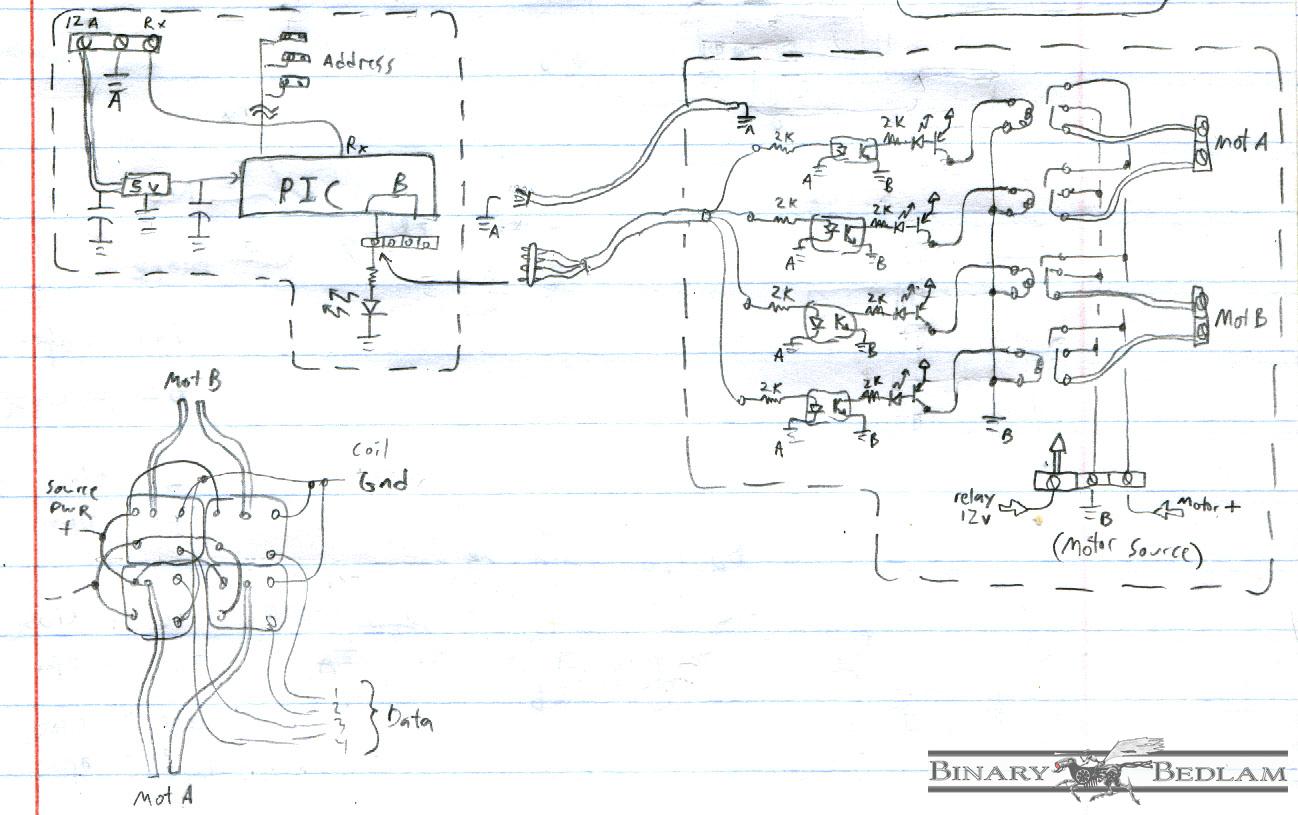 12 A
Rx
A
Address
5v
Rx
PIC
B
A
A
2K
2K
B
A
B
Mot A
2K
2K
A
B
2K
2K
A
B
Mot B
2K
2K
A
B
B
relay
12v
B
Motor +
(Motor Source)
Mot B
Coil
Gnd
Source
PWR
+
1
2
3
4
Data
Mot A
BINARY BEDLAM